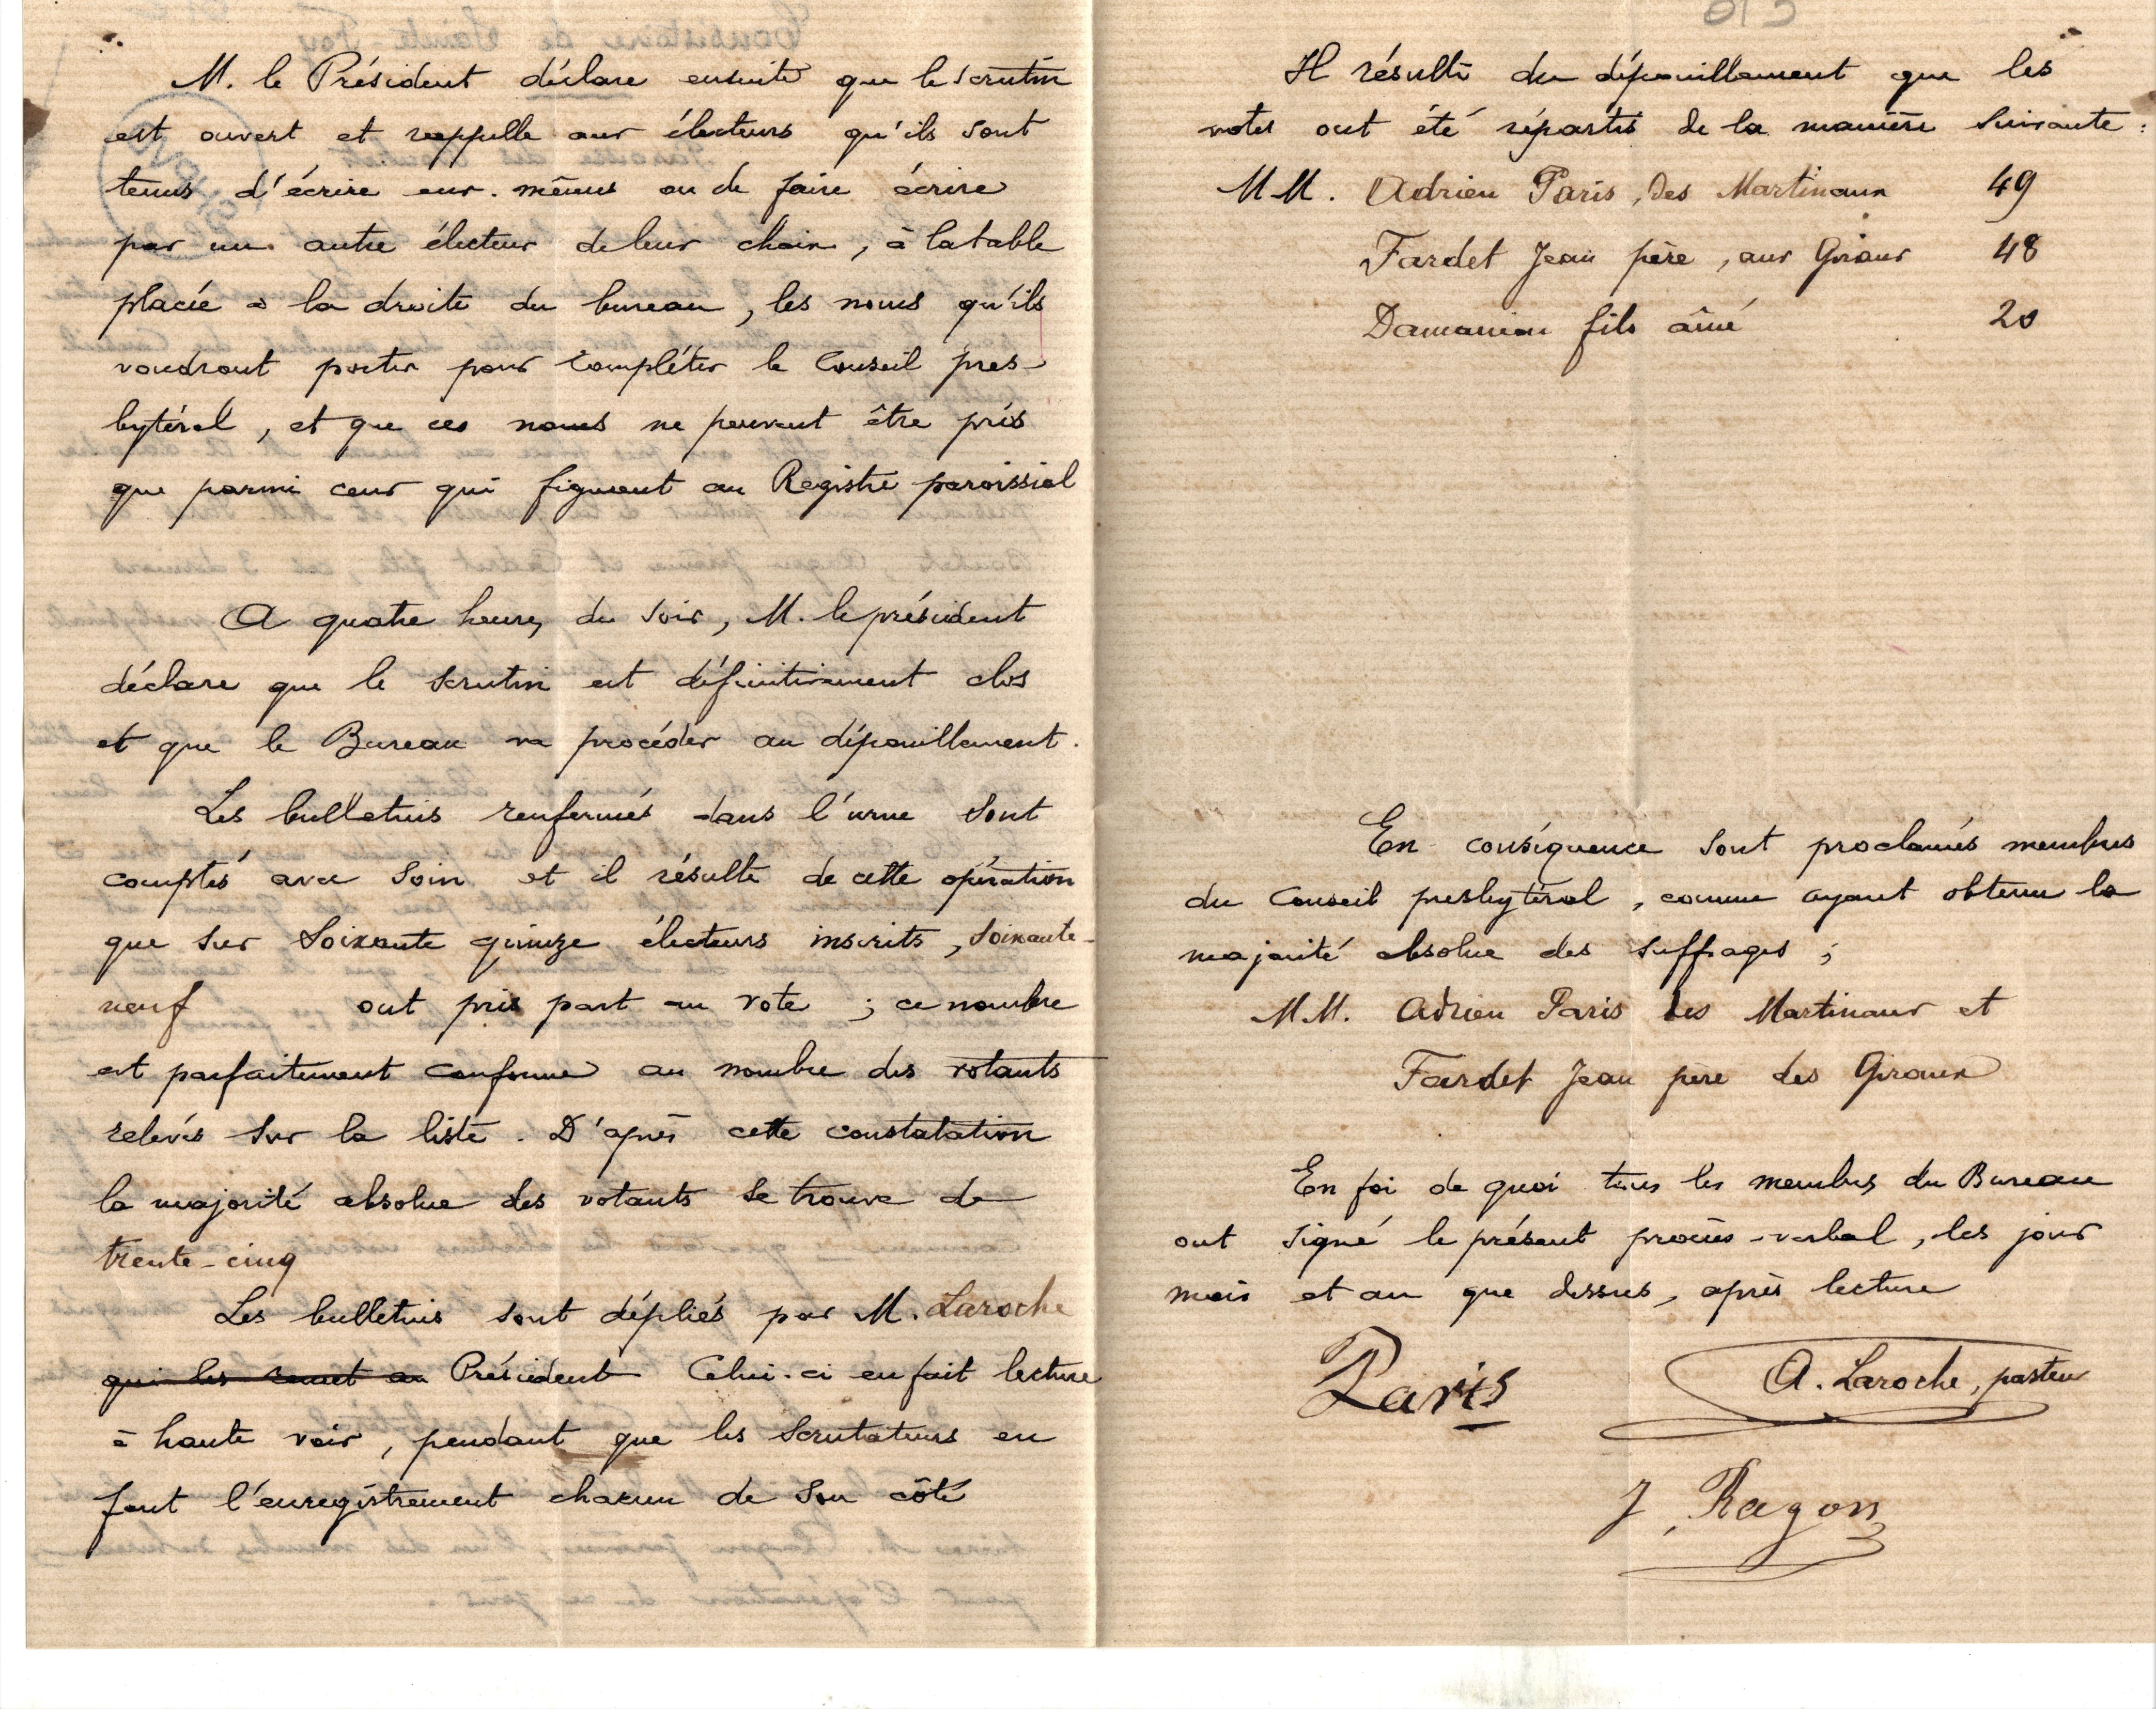 M. le Président déclare ensuite que le scrutin
est ouvert et rappelle aux électeurs qu'ils sont
tenus d'écrire eux-mêmes ou de faire écrire
par un autre électeur de leur choix, à la table
placée à la droite du bureau, les noms qu'ils
voudront porter pour compléter le Conseil pres-
bytéral, et que ces noms ne peuvent être pris
que parmi ceux qui figurent au Registre paroissial
A quatre heures du soir, M. le président
déclare que le scrutin est définitivement clos
et que le Bureau va procéder au dépouillement.
Les bulletins renfermés dans l'urne sont
comptés avec soin et il résulte de cette opération
que sur soixante quinze électeurs inscrits, soixante-
neuf ont pris part au vote ; ce nombre
est parfaitement conforme au nombre des votants
relevés sur la liste. D'après cette constatation
la majorité absolue des votants se trouve de
trente-cinq
Les bulletins sont dépliés par M. Laroche
qui les remet au Président Celui-ci en fait lecture
à haute voix, pendant que les scrutateurs en
font l'enregistrement chacun de son côté
Il résulte du dépouillement que les
votes ont été répartis de la manière suivante :
MM. Adrien Paris, des Martinaux 49
Fardet Jean père, aux Giraux 48
fils aîné 20
En conséquence sont proclamés membres
du Conseil presbytéral, comme ayant obtenu la
majorité absolue des suffrages ;
MM. Adrien Paris des Martinaux et
Fardet Jean père des Giraux
En foi de quoi tous les membres du Bureau
ont signé le présent procès-verbal, les jour
mois et an que dessus, après lecture
Paris
A. Laroche, pasteur
J. Ragon